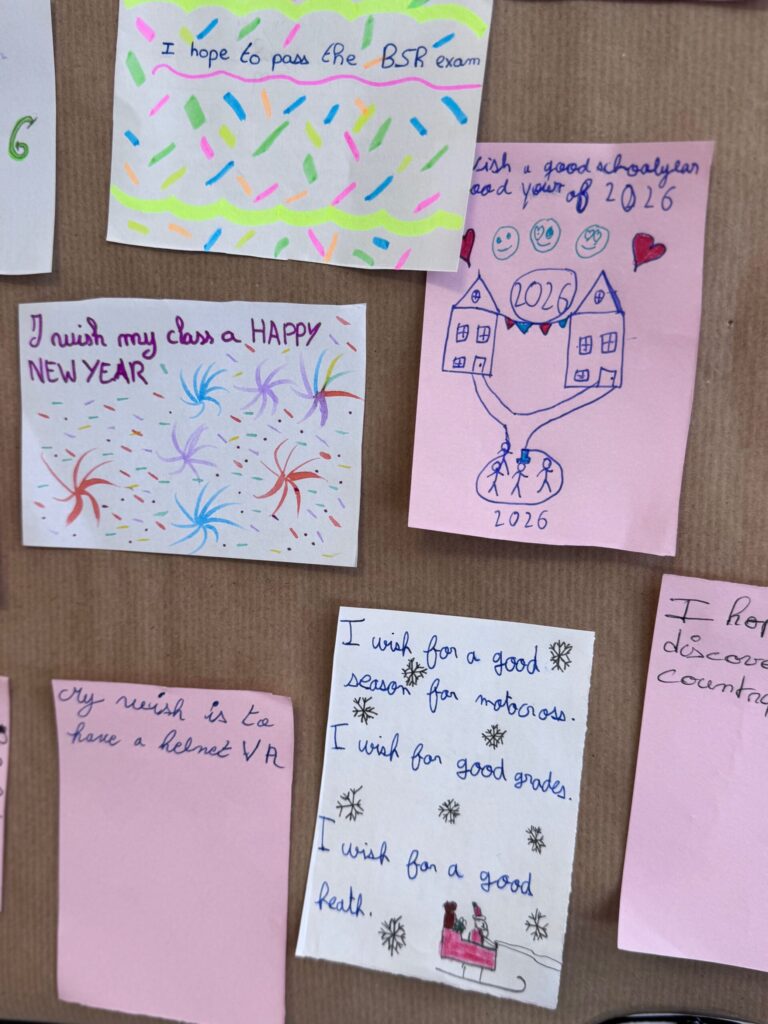 6
I hope to pass the BSR exam
wish a good schoolyear
ood your of 2026
2026
2026
I wish my class a HAPPY
NEW YEAR
My wish is to
have a helmet VR
I wish for a good
season for motocross.
I wish for good grades.
I wish for a good
heath.
I hop
discove
country